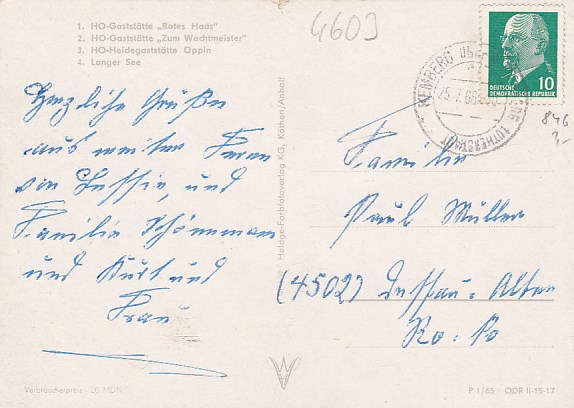 1. HO-Gaststätte „Rotes Haus"
2. HO-Gaststätte „Zum Wachtmeister"
3. HO-Heidegaststätte Oppin
4. Langer See
4603
DEUTSCHE
DEMOKRATISCHE REPUBLIK 10
KEMBERG über LUTHERSTADT
846
Herzliche Grüße
aus weiter Ferne
von und
Familie Schönemann
und Kurt und
Frau
Familie
Paul Müller
(4502) Dessau-Alten
Heldge-Farbfotoverlag KG, Köthen/Anhalt
Verbraucherpreis -,20 MDN
P 1/65 ODR II-15-17